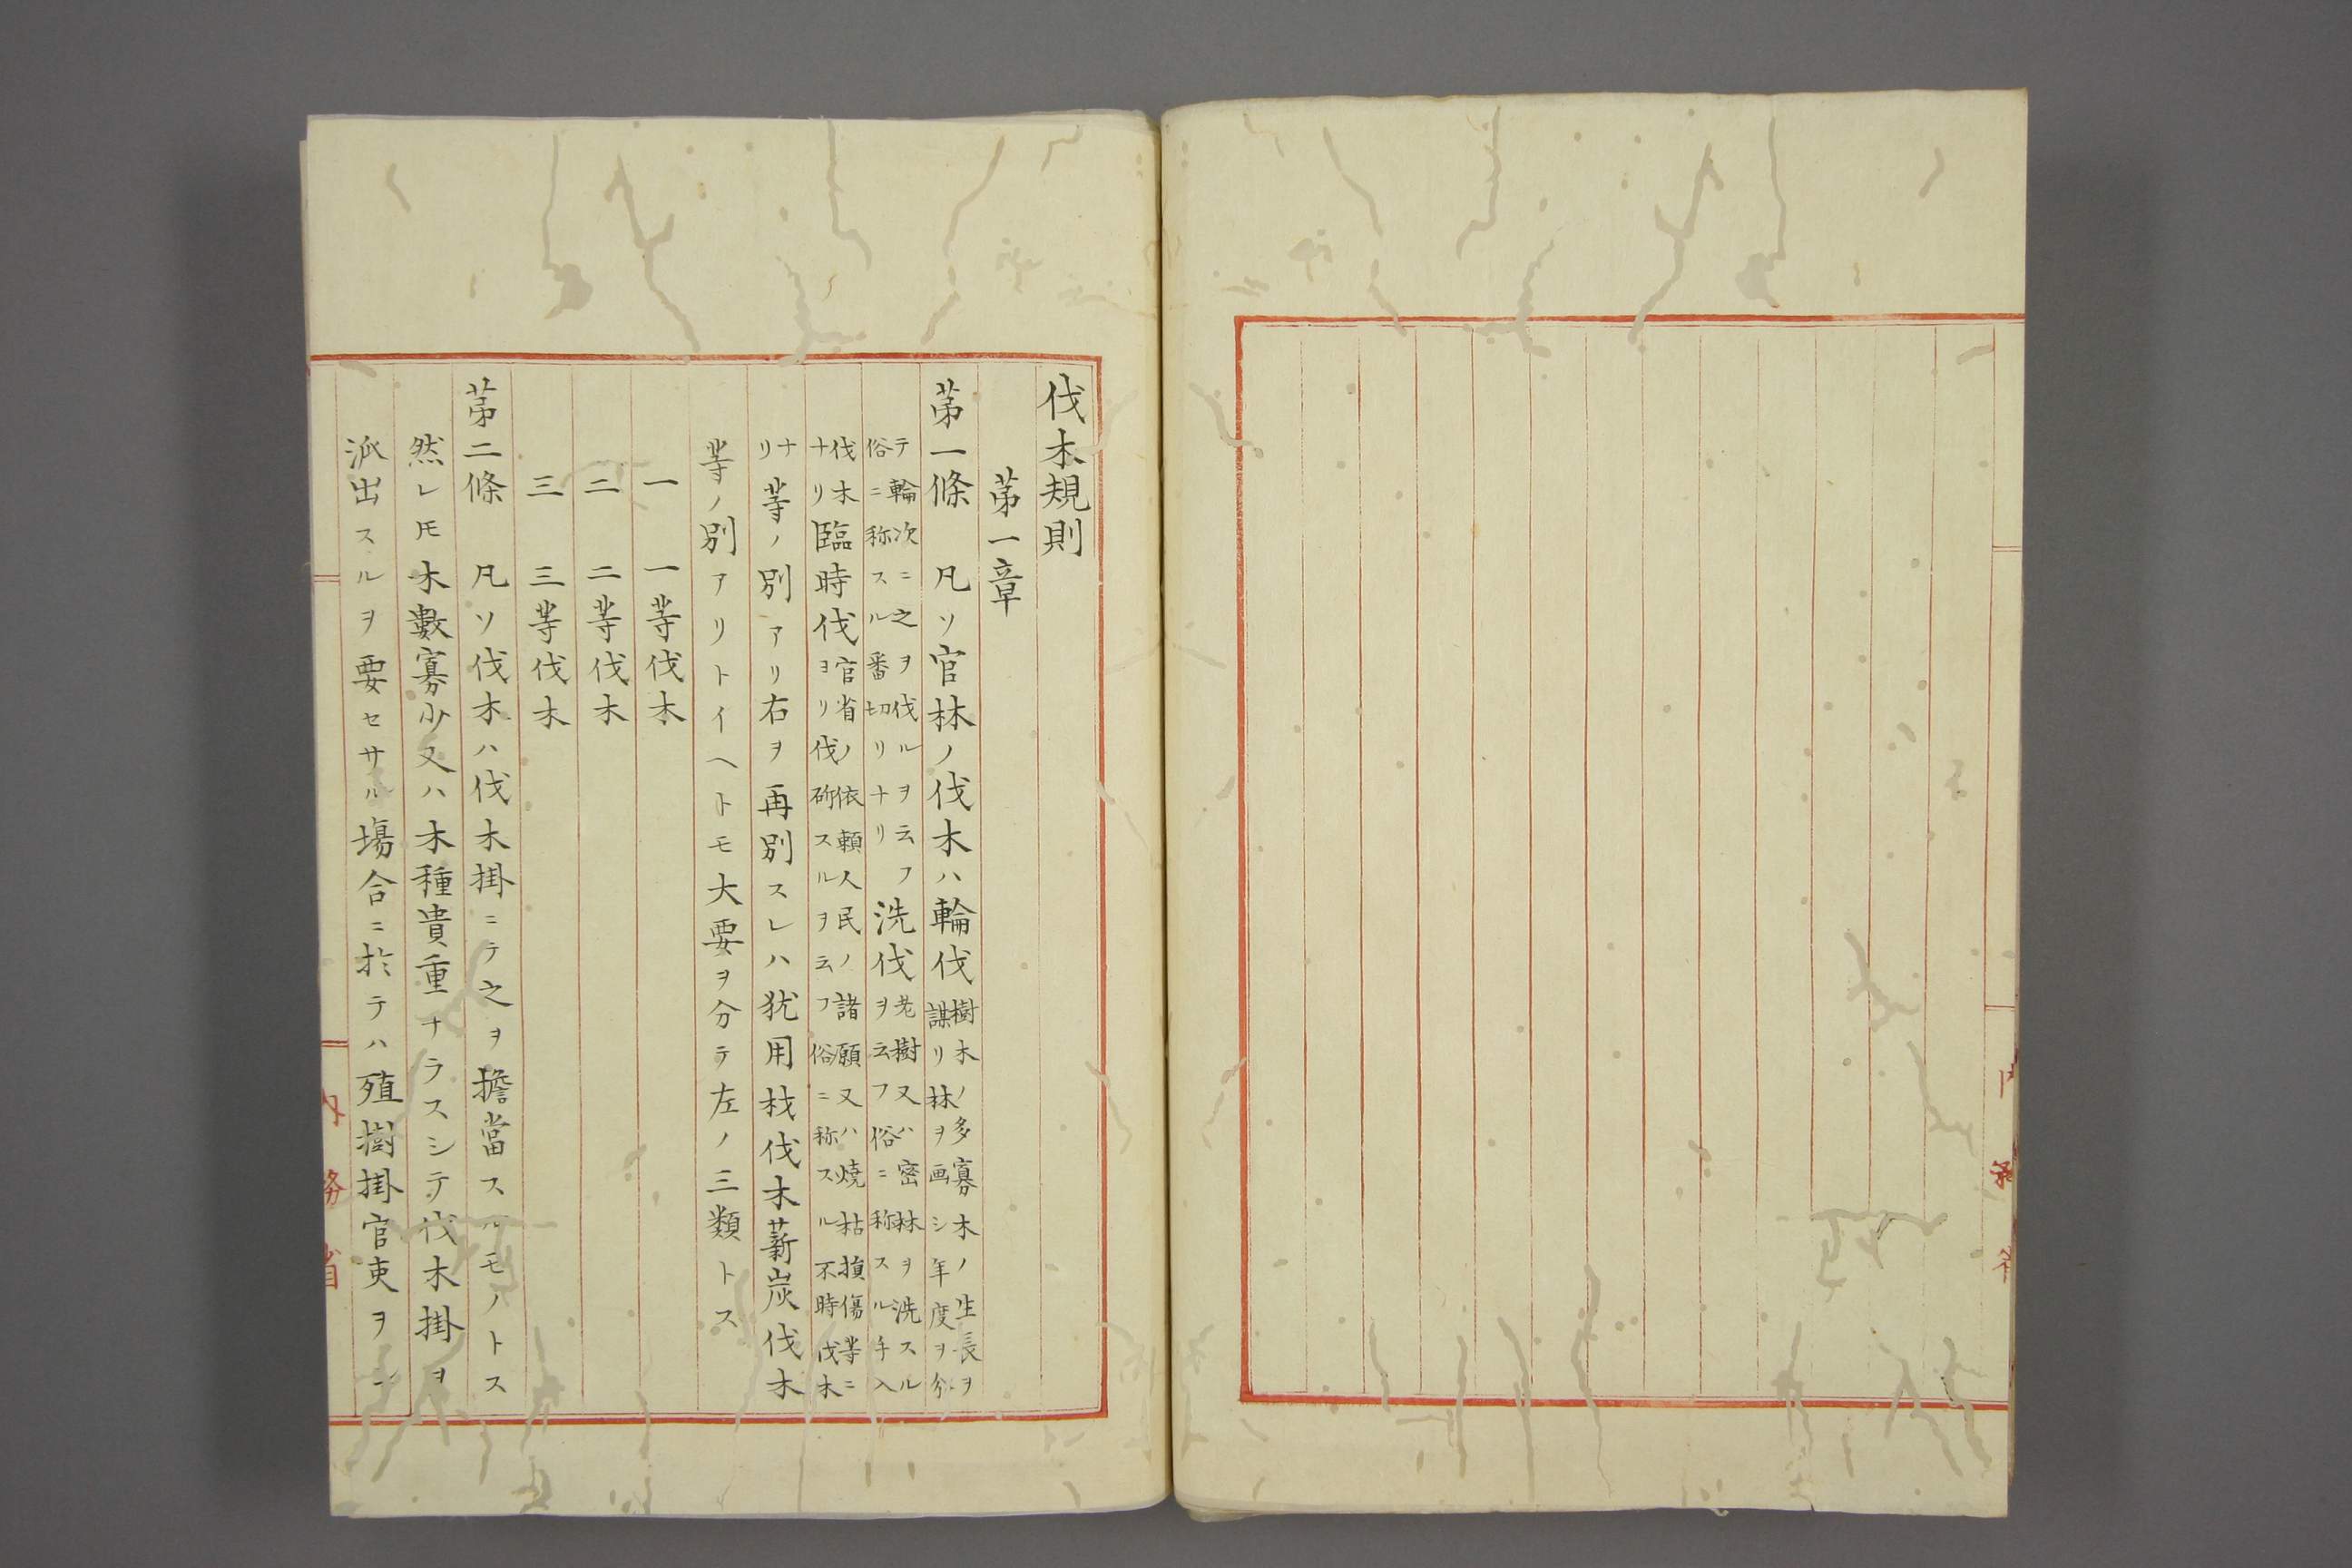 伐木規則
第一章
第一條　凡ソ官林ノ伐木ハ輪伐樹木ノ多寡木ノ生長ヲ謀リ林ヲ画シ年度ヲ分
テ輪次ニ之ヲ伐ルヲ云フ俗ニ称スル番切リナリ洗伐老樹又ハ密林ヲ洗スルヲ云フ俗ニ称スル手入
伐木ナリ臨時伐官省ノ依頼人民ノ諸願又ハ焼枯損傷等ニヨリ伐斫スルヲ云フ俗ニ称スル不時伐木
ナリ等ノ別アリ右ヲ再別スレハ犹用材伐木薪炭伐木
等ノ別アリトイヘトモ大要ヲ分テ左ノ三類トス
一　一等伐木
二　二等伐木
三　三等伐木
第二條　凡ソ伐木ハ伐木掛ニテ之ヲ擔當スルモノトス
然レ𪜈木數寡少又ハ木種貴重ナラスシテ伐木掛ヲ
派出スルヲ要セサル場合ニ於テハ殖樹掛官吏ヲシ
内務省
内務省